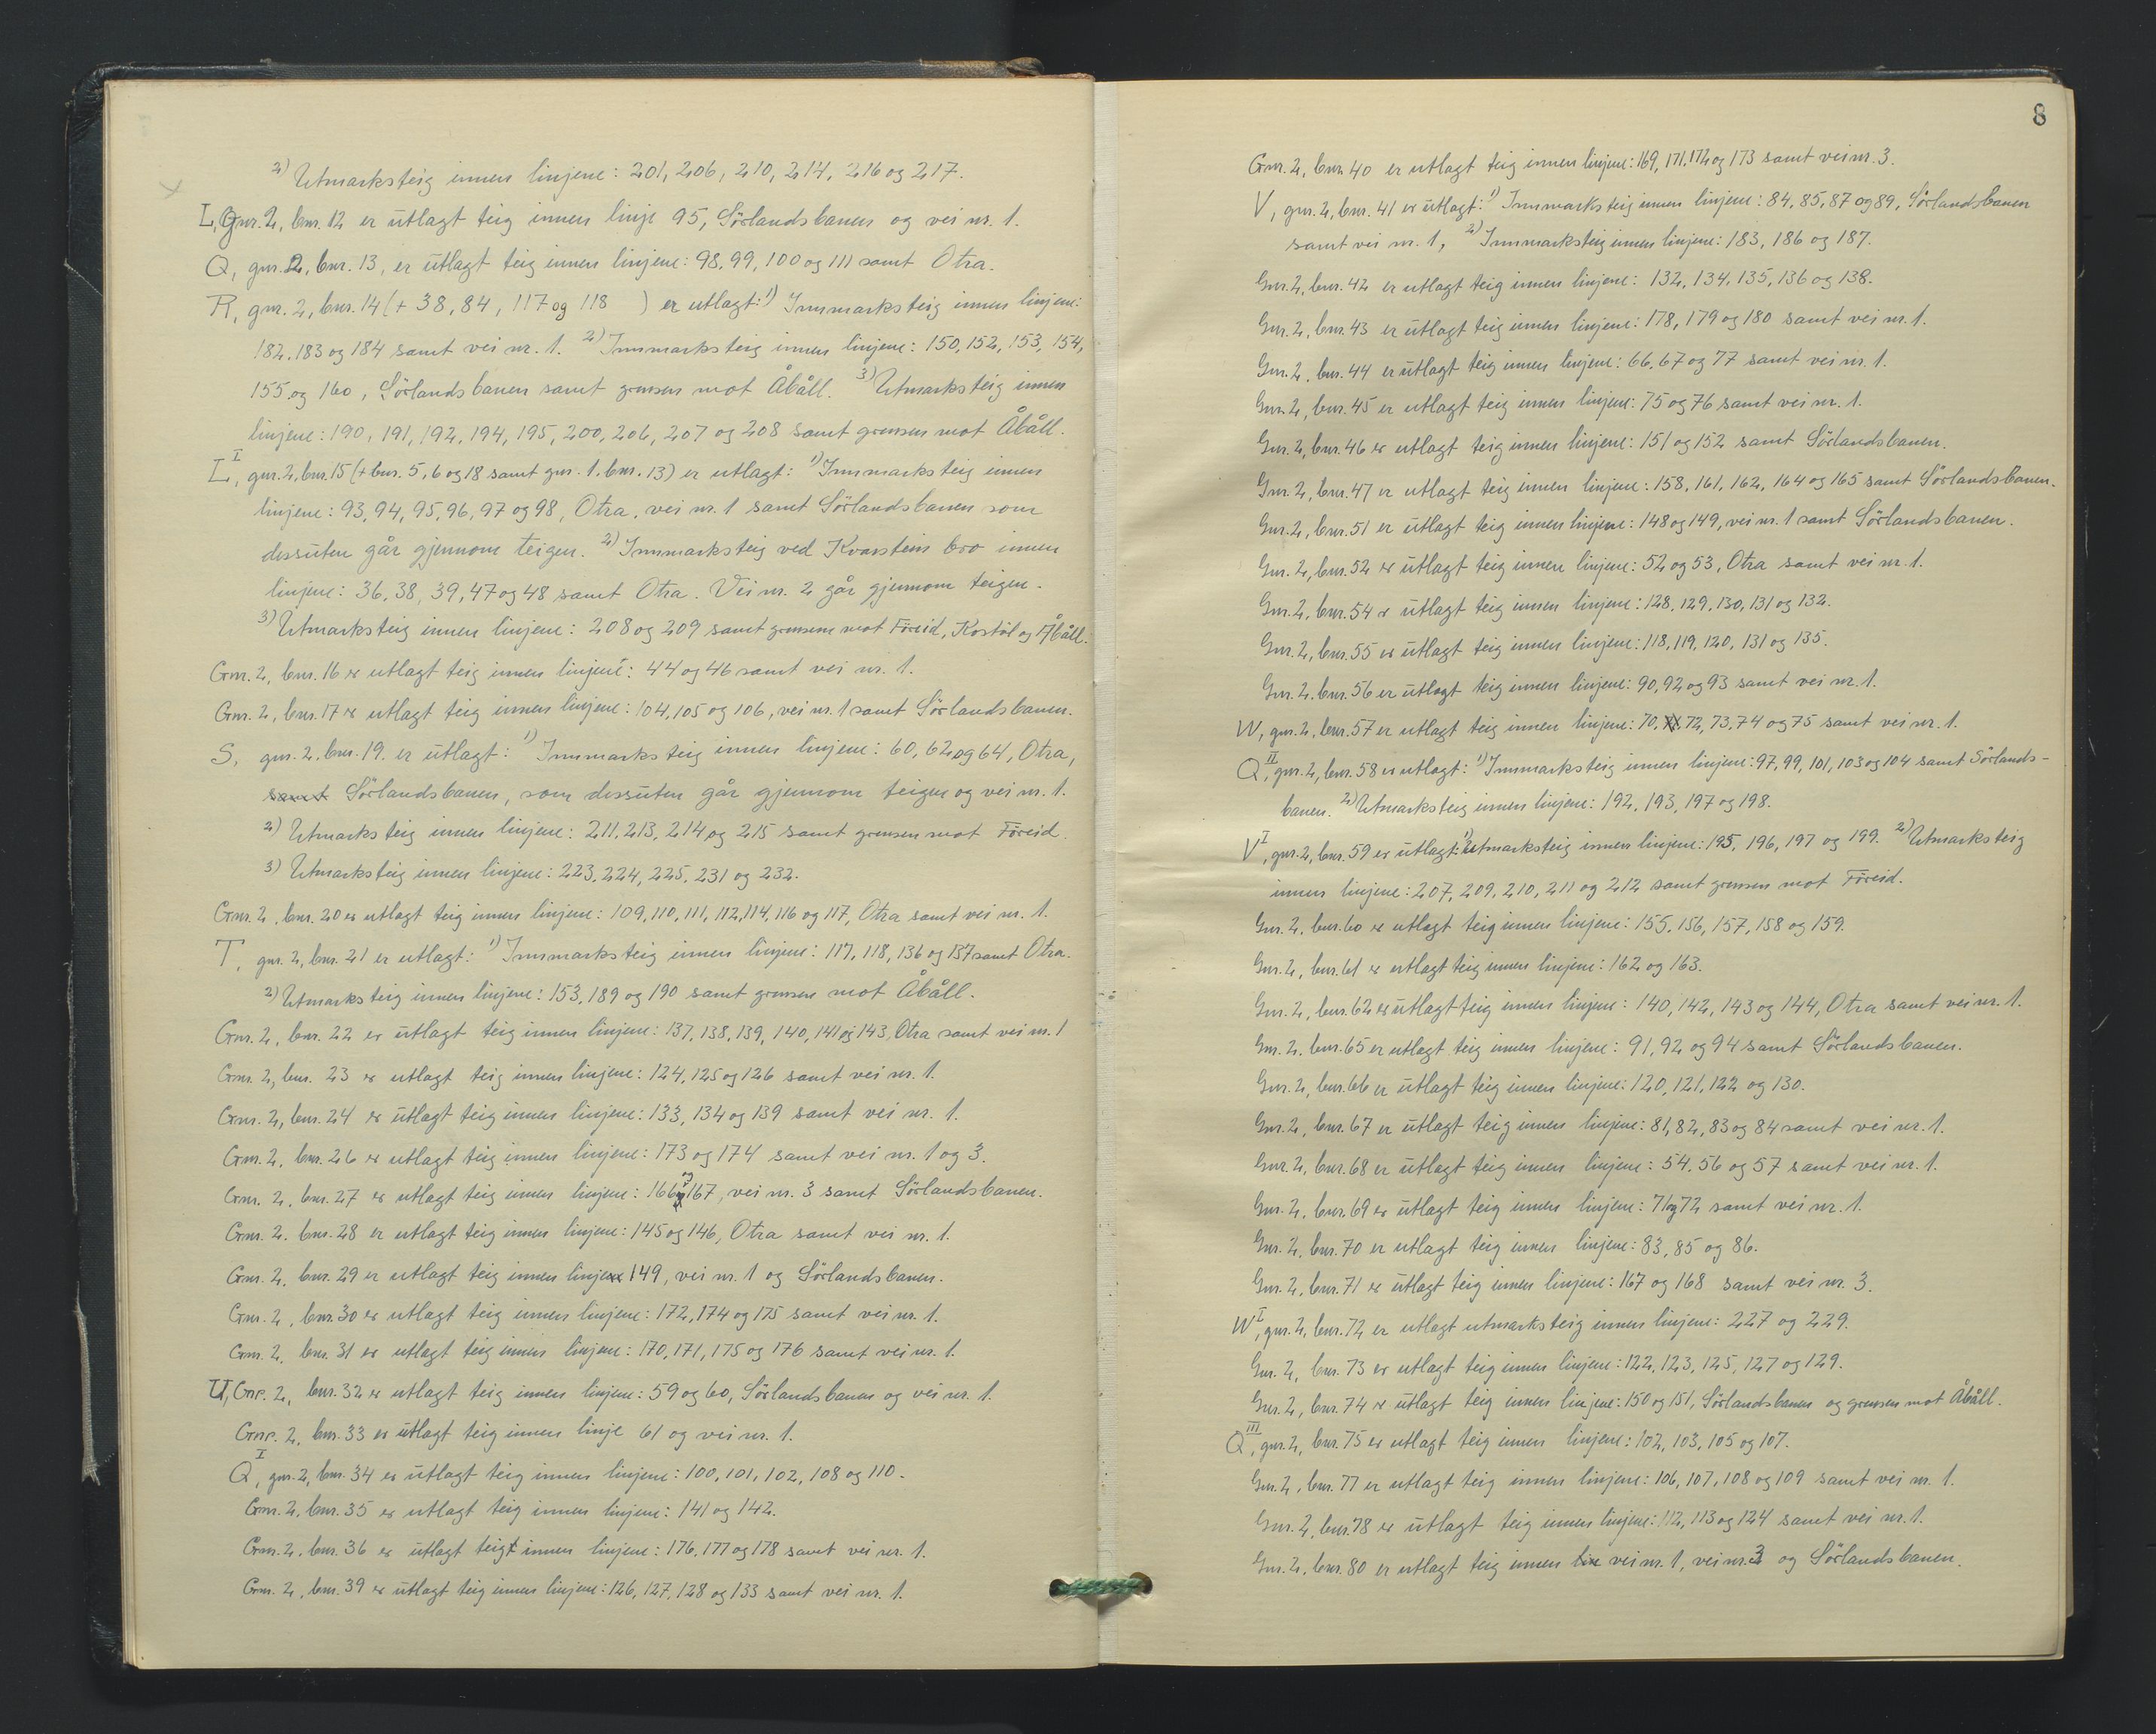 2) Utmarksteig innen linjene: 201, 206, 210, 214, 216 og 217.
L, Gnr. 2, bnr. 12 er utlagt teig innen linje 95, Sörlandsbanen og vei nr. 1.
Q, gnr. 2, bnr. 13, er utlagt teig innen linjene: 98, 99, 100 og 111 samt Otra.
R, gnr. 2, bnr. 14 (+ 38, 84, 117 og 118 ) er utlagt: 1) Innmarksteig innen linjene:
182, 183 og 184 samt vei nr. 1. 2) Innmarksteig innen linjene: 150, 152, 153, 154,
155 og 160, Sörlandsbanen samt grensen mot Åbåll. 3) Utmarksteig innen
linjene: 190, 191, 192, 194, 195, 200, 206, 207 og 208 samt grensen mot Åbåll.
L I, gnr. 2, bnr. 15 (+ bnr. 5, 6 og 18 samt gnr. 1. bnr. 13) er utlagt: 1) Innmarksteig innen
linjene: 93, 94, 95, 96, 97 og 98, Otra, vei nr. 1 samt Sörlandsbanen som
dessuten går gjennom teigen. 2) Innmarksteig ved Kvarstein bro innen
linjene: 36, 38, 39, 47 og 48 samt Otra. Vei nr. 2 går gjennom teigen.
3) Utmarksteig innen linjene: 208 og 209 samt grensene mot Föreid, Kostöl og Åbåll.
Gnr. 2, bnr. 16 er utlagt teig innen linjene: 44 og 46 samt vei nr. 1.
Gnr. 2, bnr. 17 er utlagt teig innen linjene: 104, 105 og 106, vei nr. 1 samt Sörlandsbanen.
S, gnr. 2, bnr. 19. er utlagt: 1) Innmarksteig innen linjene: 60, 62 og 64, Otra,
samt Sörlandsbanen, som dessuten går gjennom teigen og vei nr. 1.
2) Utmarksteig innen linjene: 211, 213, 214 og 215 samt grensen mot Föreid.
3) Utmarksteig innen linjene: 223, 224, 225, 231 og 232.
Gnr. 2, bnr. 20 er utlagt teig innen linjene: 109, 110, 111, 112, 114, 116 og 117, Otra samt vei nr. 1.
T, gnr. 2, bnr. 21 er utlagt: 1) Innmarksteig innen linjene: 117, 118, 136 og 137 samt Otra.
2) Utmarksteig innen linjene: 153, 189 og 190 samt grensene mot Åbåll.
Gnr. 2, bnr. 22 er utlagt teig innen linjene: 137, 138, 139, 140, 141 og 143, Otra samt vei nr. 1
Gnr. 2, bnr. 23 er utlagt teig innen linjene: 124, 125 og 126 samt vei nr. 1.
Gnr. 2, bnr. 24 er utlagt teig innen linjene: 133, 134 og 139 samt vei nr. 1.
Gnr. 2, bnr. 26 er utlagt teig innen linjene: 173 og 174 samt vei nr. 1 og 3.
Gnr. 2, bnr. 27 er utlagt teig innen linjene: 166 og 167, vei nr. 3 samt Sörlandsbanen.
Gnr. 2, bnr. 28 er utlagt teig innen linjene: 145 og 146, Otra samt vei nr. 1.
Gnr. 2, bnr. 29 er utlagt teig innen linje 149, vei nr. 1 og Sörlandsbanen.
Gnr. 2, bnr. 30 er utlagt teig innen linjene: 172, 174 og 175 samt vei nr. 1.
Gnr. 2, bnr. 31 er utlagt teig innen linjene: 170, 171, 175 og 176 samt vei nr. 1.
U, Gnr. 2, bnr. 32 er utlagt teig innen linjene: 59 og 60, Sörlandsbanen og vei nr. 1.
Gnr. 2, bnr. 33 er utlagt teig innen linje 61 og vei nr. 1.
Q I, gnr. 2, bnr. 34 er utlagt teig innen linjene: 100, 101, 102, 108 og 110.
Gnr. 2, bnr. 35 er utlagt teig innen linjene: 141 og 142.
Gnr. 2, bnr. 36 er utlagt teig innen linjene: 176, 177 og 178 samt vei nr. 1.
Gnr. 2, bnr. 39 er utlagt teig innen linjene: 126, 127, 128 og 133 samt vei nr. 1.
8
Gnr. 2, bnr. 40 er utlagt teig innen linjene: 169, 171, 172 og 173 samt vei nr. 3.
V, gnr. 2, bnr. 41 er utlagt: 1) Innmarksteig innen linjene: 84, 85, 87 og 89, Sörlandsbanen
samt vei nr. 1, 2) Innmarksteig innen linjene: 183, 186 og 187.
Gnr. 2, bnr. 42 er utlagt teig innen linjene: 132, 134, 135, 136 og 138.
Gnr. 2, bnr. 43 er utlagt teig innen linjene: 178, 179 og 180 samt vei nr. 1.
Gnr. 2, bnr. 44 er utlagt teig innen linjene: 66, 67 og 77 samt vei nr. 1.
Gnr. 2, bnr. 45 er utlagt teig innen linjene: 75 og 76 samt vei nr. 1.
Gnr. 2, bnr. 46 er utlagt teig innen linjene: 151 og 152 samt Sörlandsbanen.
Gnr. 2, bnr. 47 er utlagt teig innen linjene: 158, 161, 162, 164 og 165 samt Sörlandsbanen.
Gnr. 2, bnr. 51 er utlagt teig innen linjene: 148 og 149, vei nr. 1 samt Sörlandsbanen.
Gnr. 2, bnr. 52 er utlagt teig innen linjene: 52 og 53, Otra samt vei nr. 1.
Gnr. 2, bnr. 54 er utlagt teig innen linjene: 128, 129, 130, 131 og 132.
Gnr. 2, bnr. 55 er utlagt teig innen linjene: 118, 119, 120, 131 og 135.
Gnr. 2, bnr. 56 er utlagt teig innen linjene: 90, 92 og 93 samt vei nr. 1.
W, gnr. 2, bnr. 57 er utlagt teig innen linjene: 70, 72, 73, 74 og 75 samt vei nr. 1.
Q II, gnr. 2, bnr. 58 er utlagt: 1) Innmarksteig innen linjene: 97, 99, 101, 103 og 104 samt Sörlands-
banen. 2) Utmarksteig innen linjene: 192, 193, 197 og 198.
V I, gnr. 2, bnr. 59 er utlagt: 1) Utmarksteig innen linjene: 195, 196, 197 og 199. 2) Utmarksteig
innen linjene: 207, 209, 210, 211 og 212 samt grensen mot Föreid.
Gnr. 2, bnr. 60 er utlagt teig innen linjene: 155, 156, 157, 158 og 159.
Gnr. 2, bnr. 61 er utlagt teig innen linjene: 162 og 163.
Gnr. 2, bnr. 62 er utlagt teig innen linjene: 140, 142, 143 og 144, Otra samt vei nr. 1.
Gnr. 2, bnr. 65 er utlagt teig innen linjene: 91, 92 og 94 samt Sörlandsbanen.
Gnr. 2, bnr. 66 er utlagt teig innen linjene: 120, 121, 122 og 130.
Gnr. 2, bnr. 67 er utlagt teig innen linjene: 81, 82, 83 og 84 samt vei nr. 1.
Gnr. 2, bnr. 68 er utlagt teig innen linjene: 54, 56 og 57 samt vei nr. 1.
Gnr. 2, bnr. 69 er utlagt teig innen linjene: 71 og 72 samt vei nr. 1.
Gnr. 2, bnr. 70 er utlagt teig innen linjene: 83, 85 og 86.
Gnr. 2, bnr. 71 er utlagt teig innen linjene: 167 og 168 samt vei nr. 3.
W I, gnr. 2, bnr. 72 er utlagt utmarksteig innen linjene: 227 og 229.
Gnr. 2, bnr. 73 er utlagt teig innen linjene: 122, 123, 125, 127 og 129.
Gnr. 2, bnr. 74 er utlagt teig innen linjene: 150 og 151, Sörlandsbanen og grensen mot Åbåll.
Q III, gnr. 2, bnr. 75 er utlagt teig innen linjene: 102, 103, 105 og 107.
Gnr. 2, bnr. 77 er utlagt teig innen linjene: 106, 107, 108 og 109 samt vei nr. 1.
Gnr. 2, bnr. 78 er utlagt teig innen linjene: 112, 113 og 124 samt vei nr. 1.
Gnr. 2, bnr. 80 er utlagt teig innen lin vei nr. 1, vei nr. 3 og Sörlandsbanen.